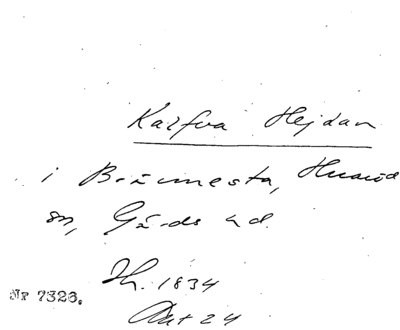 Kalfva Hejdan
i Brämnesta, Huaröd
sn, Gärds hd.
Th. 1834
Akt 24
Nr 7323.